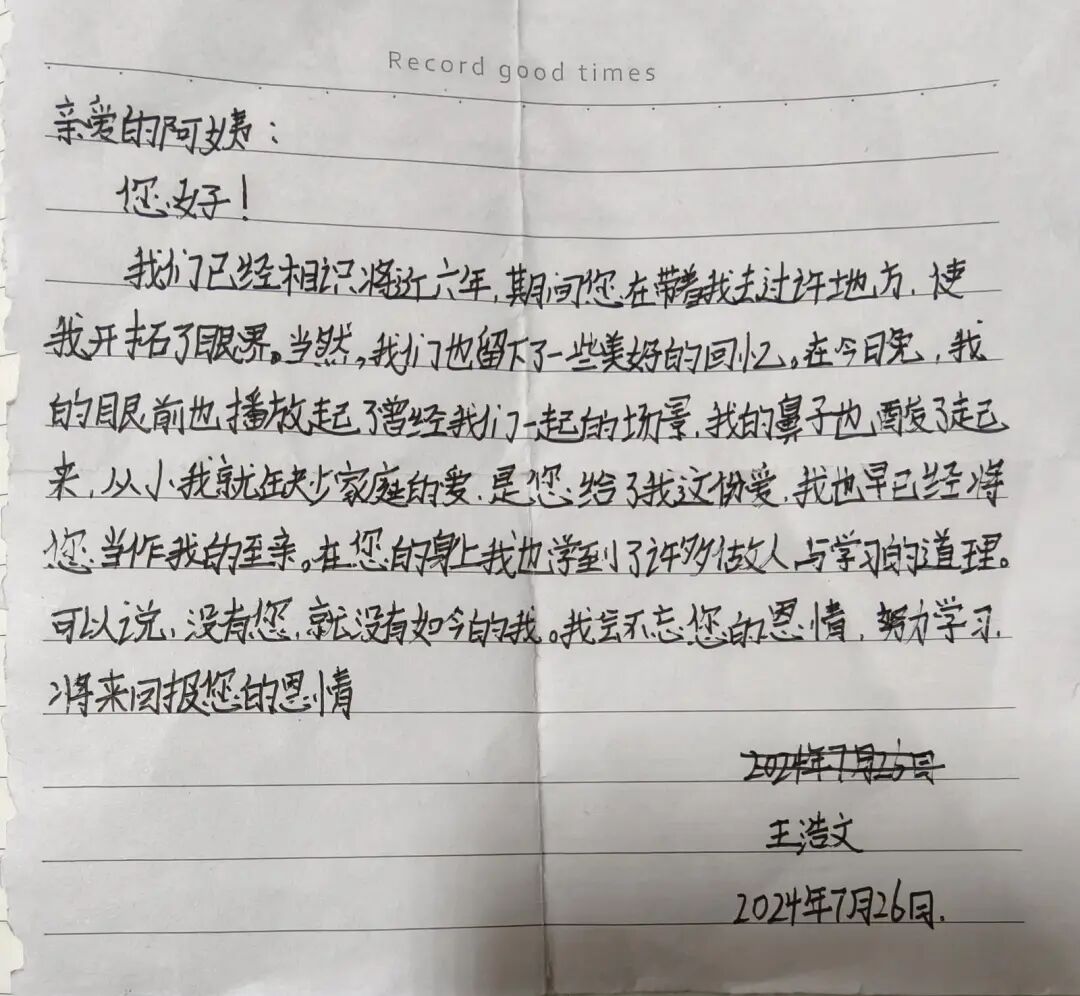 Record good times
亲爱的阿姨：
您好！
我们已经相识将近六年，期间您在带着我去过许地方，使
我开拓了眼界。当然，我们也留下了一些美好的回忆。在今日免，我
的眼前也播放起了曾经我们一起的场景，我的鼻子也酸了起
来，从小我就在缺少家庭的爱，是您给了我这份爱，我也早已经将
您当作我的至亲。在您的身上我也学到了许多做人与学习的道理。
可以说，没有您，就没有如今的我。我会不忘您的恩情，努力学习，
将来回报您的恩情
2024年7月25日
王浩文
2024年7月26日.